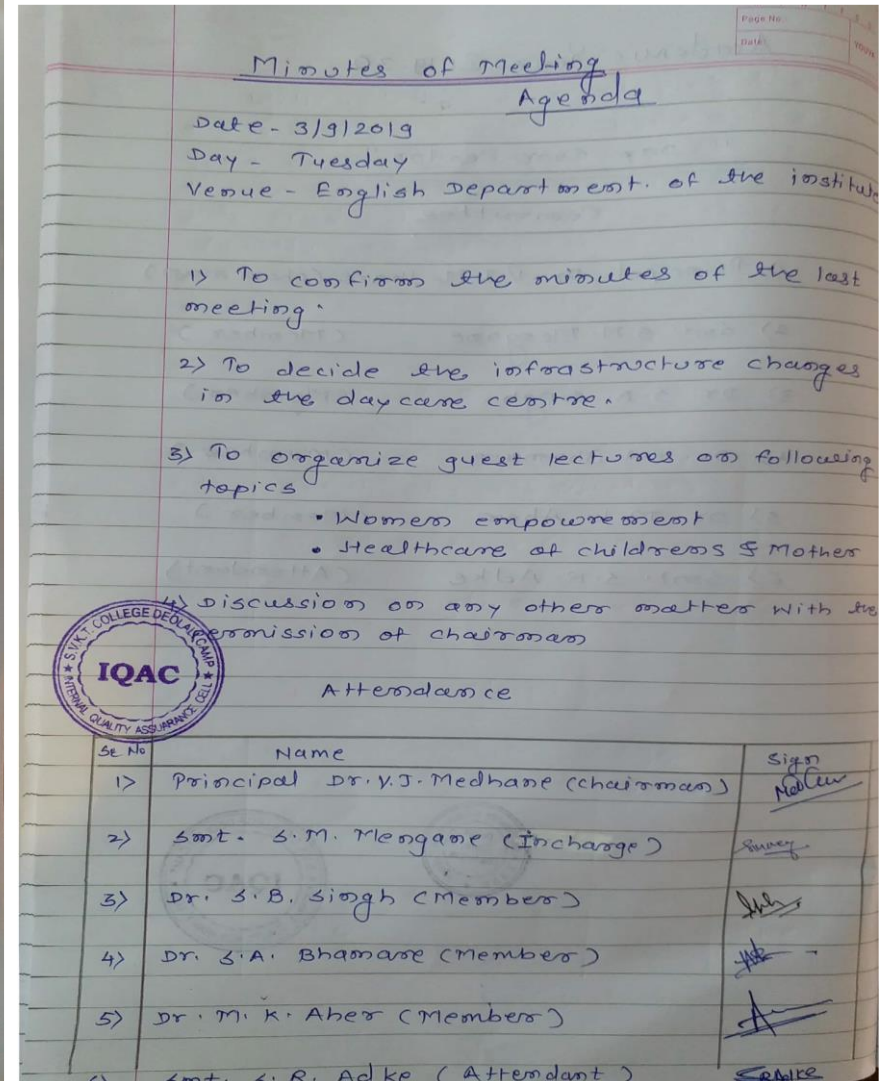 Page No.
Date
Minutes of Meeting
Agenda
Date - 3/9/2019
Day - Tuesday
Venue - English Department. of the institute
1) To confirm the minutes of the last
meeting.
2) To decide the infrastructure changes
in the day care centre.
3) To organize guest lectures on following
topics
• Women empowrement
• Healthcare of childrens & Mother
4) Discussion on any other matter with the
permission of chairman
S.V.K.T. COLLEGE DEOLALI CAMP
IQAC
INTERNAL QUALITY ASSUARANCE CELL
Attendance
Sr No Name Sign
1) Principal Dr. V. J. Medhane (chairman)
2) Smt. S. M. Mengane (Incharge)
3) Dr. S. B. Singh (Member)
4) Dr. S. A. Bhamare (Member)
5) Dr. M. K. Aher (Member)
Smt. S. R. Adke (Attendant) SRAdke